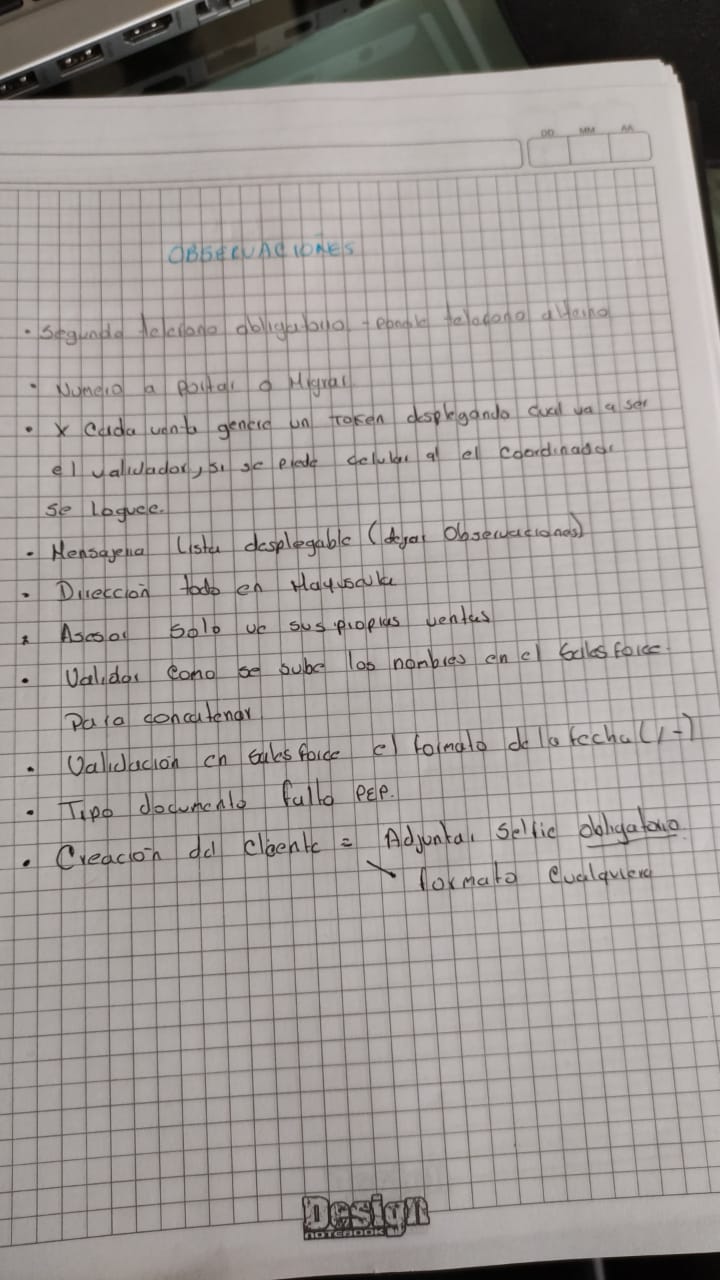 DD MM AA
OBSECUACIONES
• Segundo telefono obligatorio telefono alterno
• Numero a Portar o Migrar
• X Cada venta genere un Token desplegando cual va a ser
el validador, si se pide celular al el Coordinador
se loguee.
• Mensajeria lista desplegable (dejar Observaciones)
• Direccion todo en Mayuscula
• Asesor Solo ve sus propias ventas
• Validar como se sube los nombres en el Sales force
Para concatenar
• Validación en Sales force el formato de la fecha (/ -)
• Tipo documento falto PEP.
• Creación del Cliente = Adjuntar Selfie obligatorio
formato Cualquiera
Design
NOTEBOOK